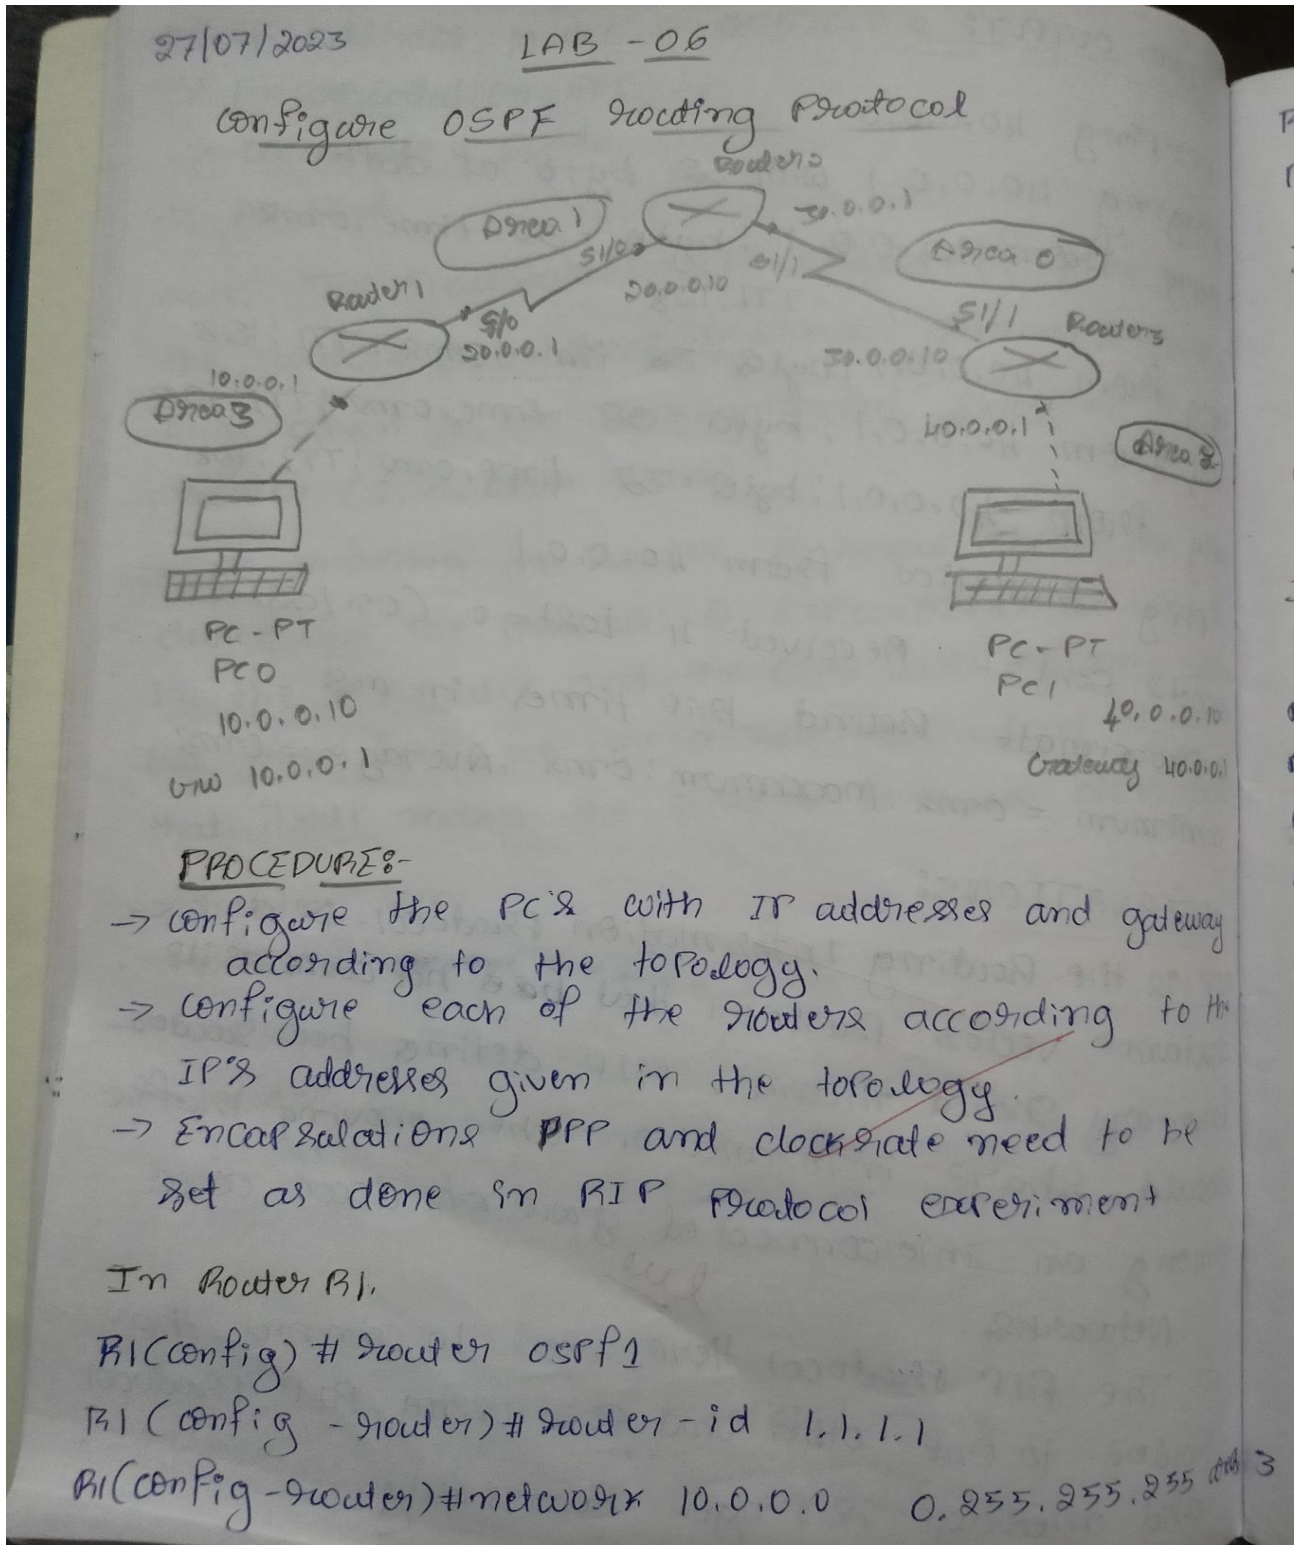 27/07/2023
LAB - 06
configure OSPF routing Protocol
Router2
Area 1
30.0.0.1
Area 0
S1/0
S1/1
20.0.0.10
Router1
S1/0
20.0.0.1
S1/1
Router3
30.0.0.10
10.0.0.1
Area 3
40.0.0.1
Area 2
PC-PT
PC0
10.0.0.10
GW 10.0.0.1
PC-PT
PC1
40.0.0.10
Gateway 40.0.0.1
PROCEDURE:-
→ configure the PC's with IP addresses and gateway
according to the topology.
→ configure each of the routers according to the
IP's addresses given in the topology.
→ Encapsulations PPP and clockrate need to be
set as done in RIP Protocol experiment
In Router R1.
R1(config)# router ospf1
R1(config-router)# router-id 1.1.1.1
R1(config-router)#network 10.0.0.0 0.255.255.255 area 3